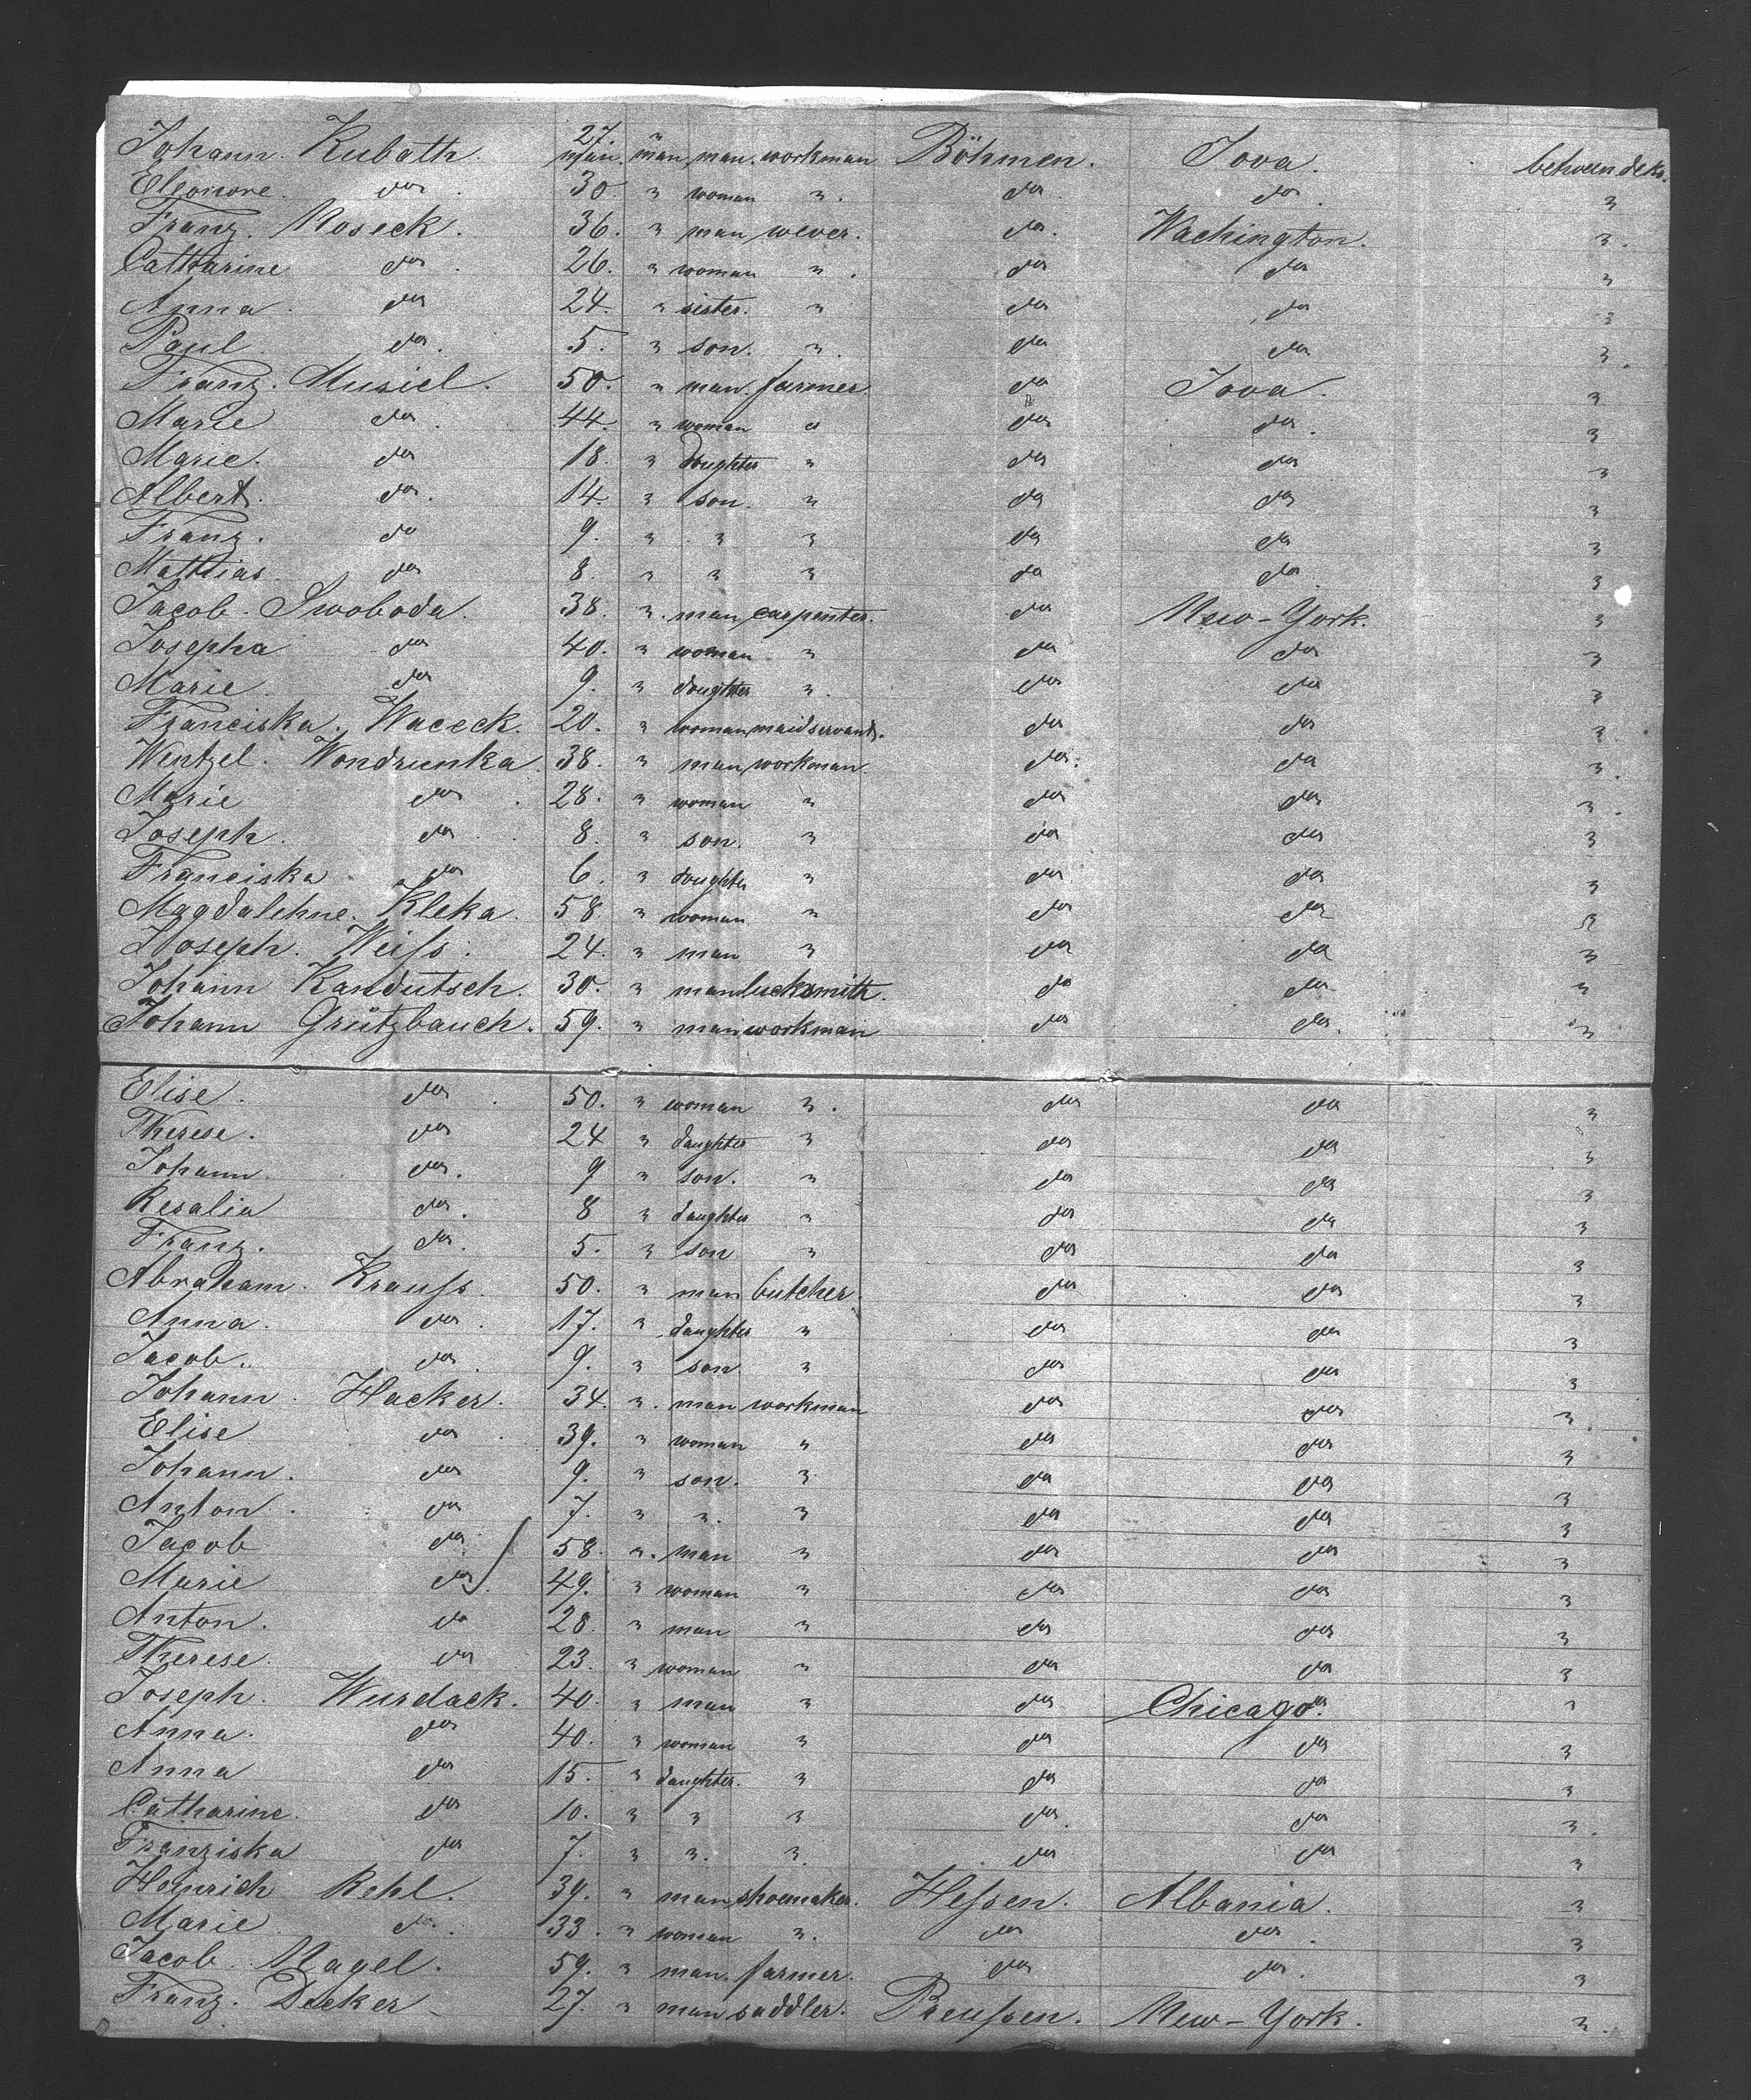 Johann. Kubath. 27. man. workman Böhmen. Iova. betweendeks.
Eleonore. do. 30. " woman ". do. do. "
Franz. Noseck. 36. " man wever. do. Wachington. "
Catharine do. 26. " woman ". do do "
Anna. do 24. " sister. " do do "
Paul do. 5. " son. ". do do "
Franz. Musiel. 50. " man. farmer. do Iova. "
Marie do. 44. " woman " do do. "
Marie. do 18. " doughter " do do "
Albert. do. 14. " son. " do do "
Franz. do 9. " " " do do "
Mathias do 8. " " " do do "
Jacob. Swoboda. 38. " man carpenter. do New-York. "
Josepha do 40. " woman " do do "
Marie do 9. " doughter ". do do "
Franciska. Waceck. 20. " woman maidservant. do do "
Wentzel. Wondrunka. 38. " man workman. do. do "
Marie do. 28. " woman " do do "
Joseph. do. 8. " son. " do do "
Franciska do 6. " doughter " do do "
Magdalehne. Kleka. 58. " woman " do do "
Joseph. Weiſs. 24. " man " do do "
Johann Kandutsch. 30. " man lucksmith. do do "
Johann Grützbauch. 59. " man workman do do. "
Elise. do. 50. " woman ". do do "
Therese. do 24 " daughter " do do "
Johann. do. 9 " son. " do do "
Resalia do. 8 " daughter " do do "
Franz. do. 5. " son " do do "
Abraham. Krauſs. 50. " man butcher. do do "
Anna. do. 17. " daughter " do do "
Jacob. do. 9. " son. " do do "
Johann. Hacker. 34. " man workman do do "
Elise do. 39. " woman " do do "
Johann. do 9. " son. " do do "
Anton. do 7. " ". " do do "
Jacob do 58. " man " do do "
Marie do. 49. " woman " do do "
Anton. do 28. " man " do do "
Therese. do 23. " woman " do do "
Joseph. Wurdack. 40. " man " do Chicago. "
Anna. do 40. " woman " do do "
Anna do 15. " daughter. " do do "
Catharine. do 10. " " " do. do "
Franziska do 7. " ". " do do "
Heinrich Rehl. 39. " man shoemaker. Heſsen. Albania. "
Marie do. 33. " woman ". do do. "
Jacob. Nagel. 59. " man. farmer. do do. "
Franz. Decker 27. " man saddler. Preuſsen. New-York. "